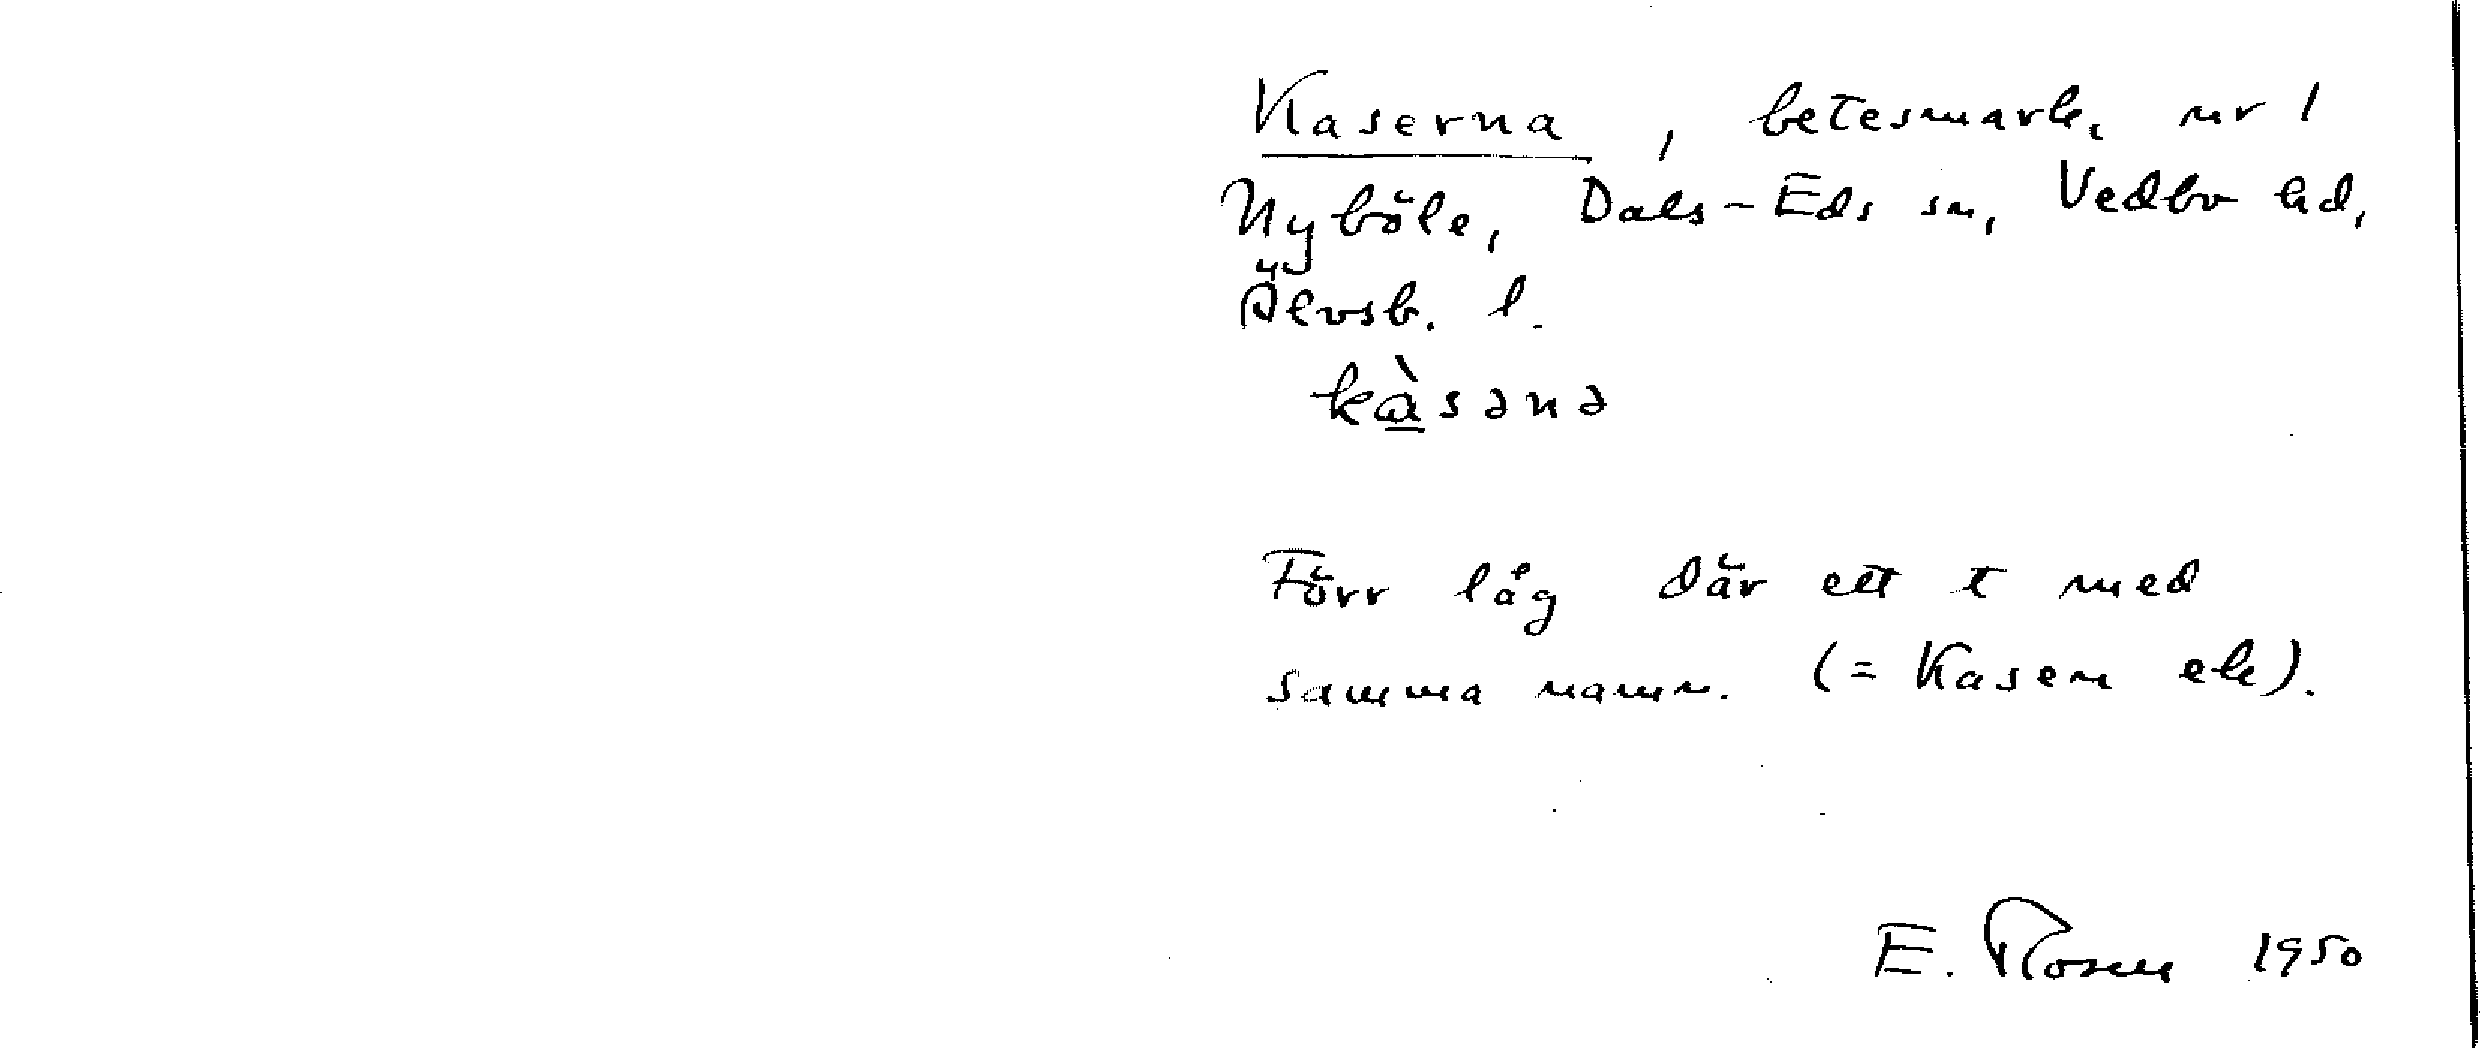 Kaserna, betesmark, nr 1
Nyböle, Dals-Eds sn, Vedbo hd,
Älvsb. l.
kàsənə
Förr låg där ett t med
samma namn. (= Kasen ek).
E. Rosen 1950